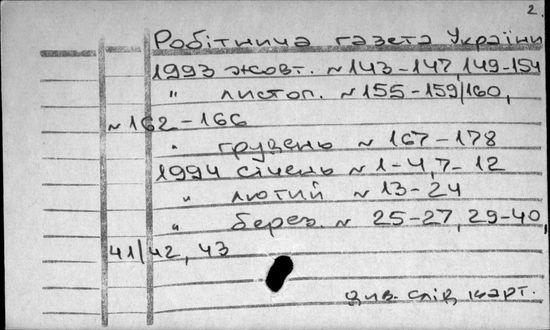 2.
Робітнича газета України
1993 жовт. N 143-147, 149-154
" листоп. N 155-159/160,
N 162-166
" грудень N 167-178
1994 січень N 1-4, 7-12
" лютий N 13-24
" берез. N 25-27, 29-40,
41/42, 43
див. слід карт.